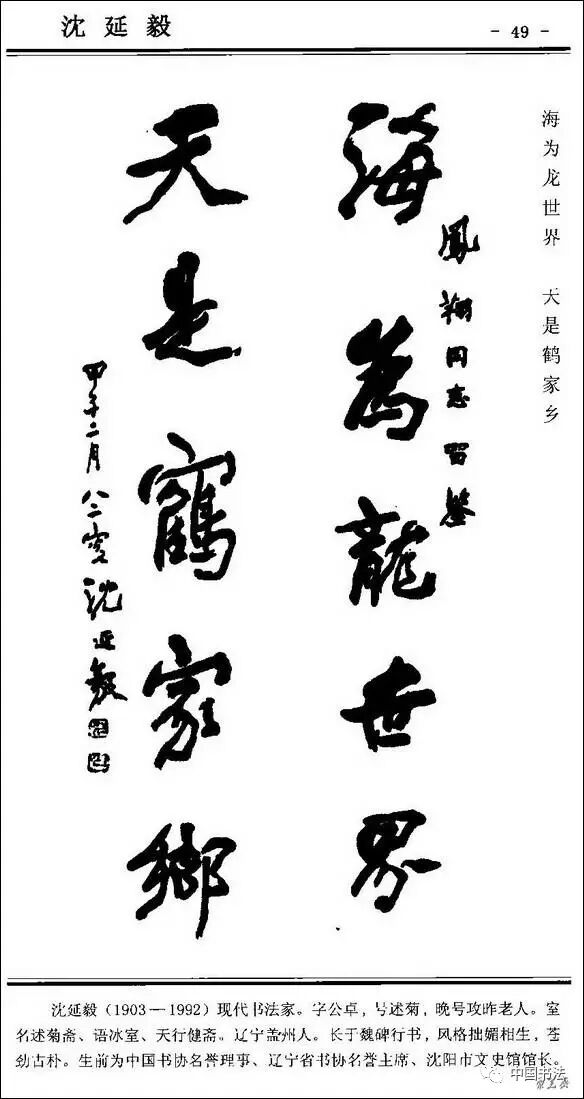 沈延毅
- 49 -
海为龙世界 天是鹤家乡
鳳翔同志留鑒
海為龍世界
天是鶴家鄉
甲子二月八二叟沈延毅
沈延毅（1903－1992）现代书法家。字公卓，号述菊，晚号攻昨老人。室
名述菊斋、语冰室、天行健斋。辽宁盖州人。长于魏碑行书，风格拙媚相生，苍
劲古朴。生前为中国书协名誉理事、辽宁省书协名誉主席、沈阳市文史馆馆长。
中国书法